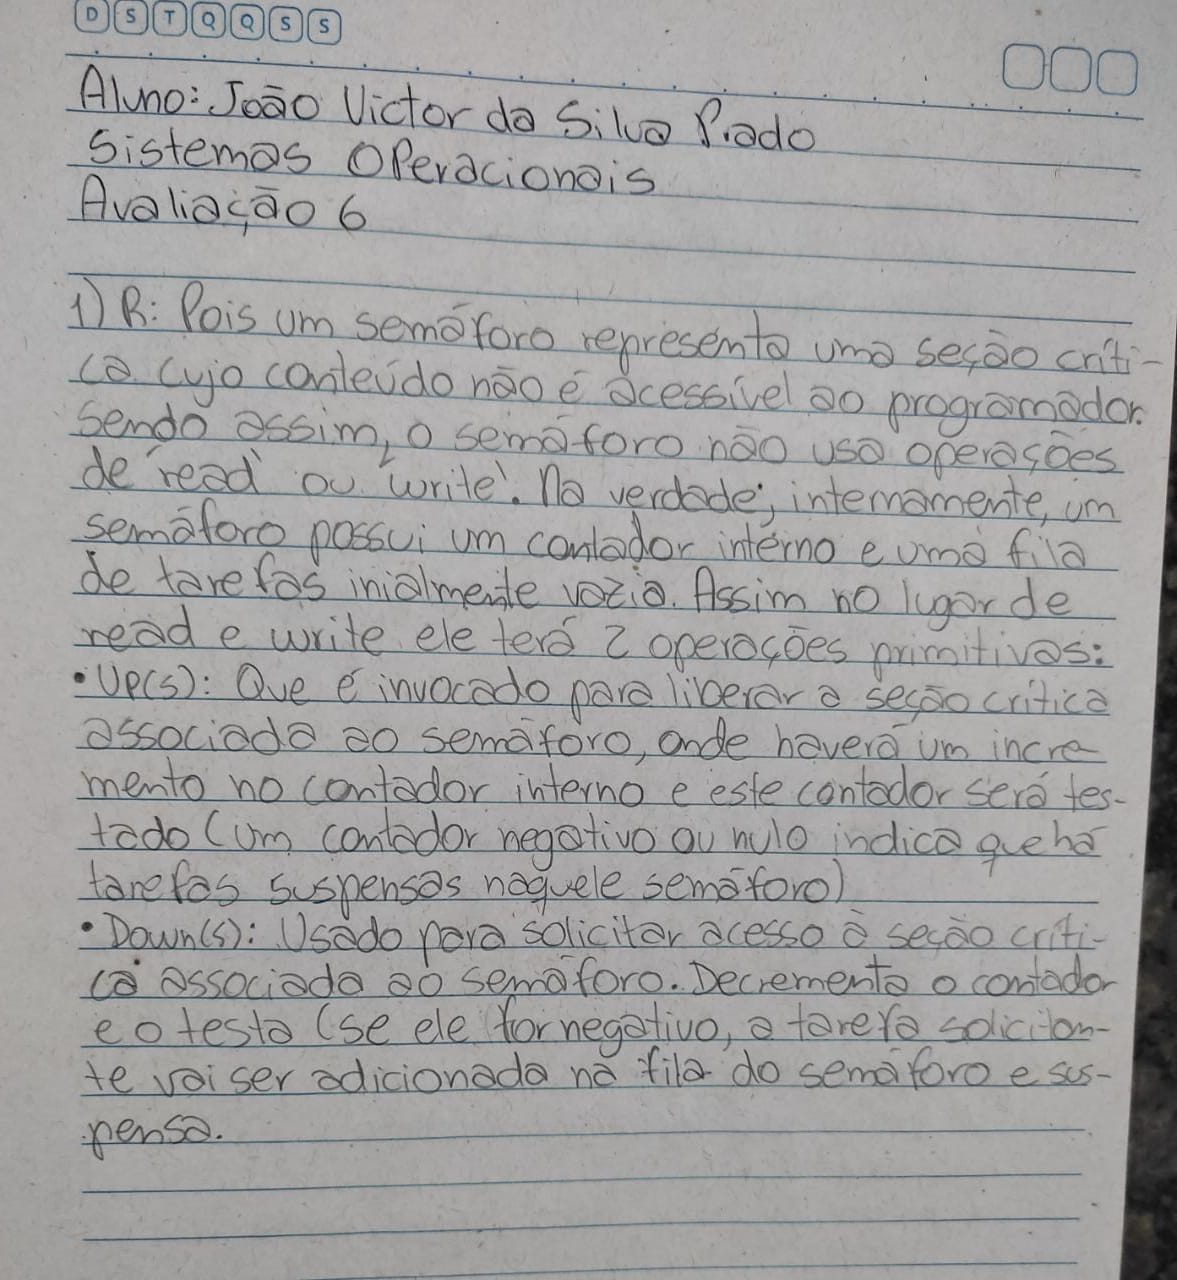 D S T Q Q S S
Aluno: João Victor da Silva Prado
Sistemas Operacionais
Avaliação 6
1) R: Pois um semáforo representa uma seção críti-
ca cujo conteúdo não é acessível ao programador.
Sendo assim, o semáforo não usa operações
de 'read' ou 'write'. Na verdade, internamente, um
semáforo possui um contador interno e uma fila
de tarefas inialmente vazia. Assim no lugar de
read e write ele terá 2 operações primitivas:
• Up(s): Que é invocado para liberar a seção crítica
associada ao semáforo, onde haverá um incre
mento no contador interno e este contador será tes-
tado (um contador negativo ou nulo indica que há
tarefas suspensas naquele semáforo)
• Down(s): Usado para solicitar acesso à seção críti-
ca associada ao semáforo. Decrementa o contador
e o testa (se ele for negativo, a tarefa solicitan-
te vai ser adicionada na fila do semáforo e sus-
pensa.